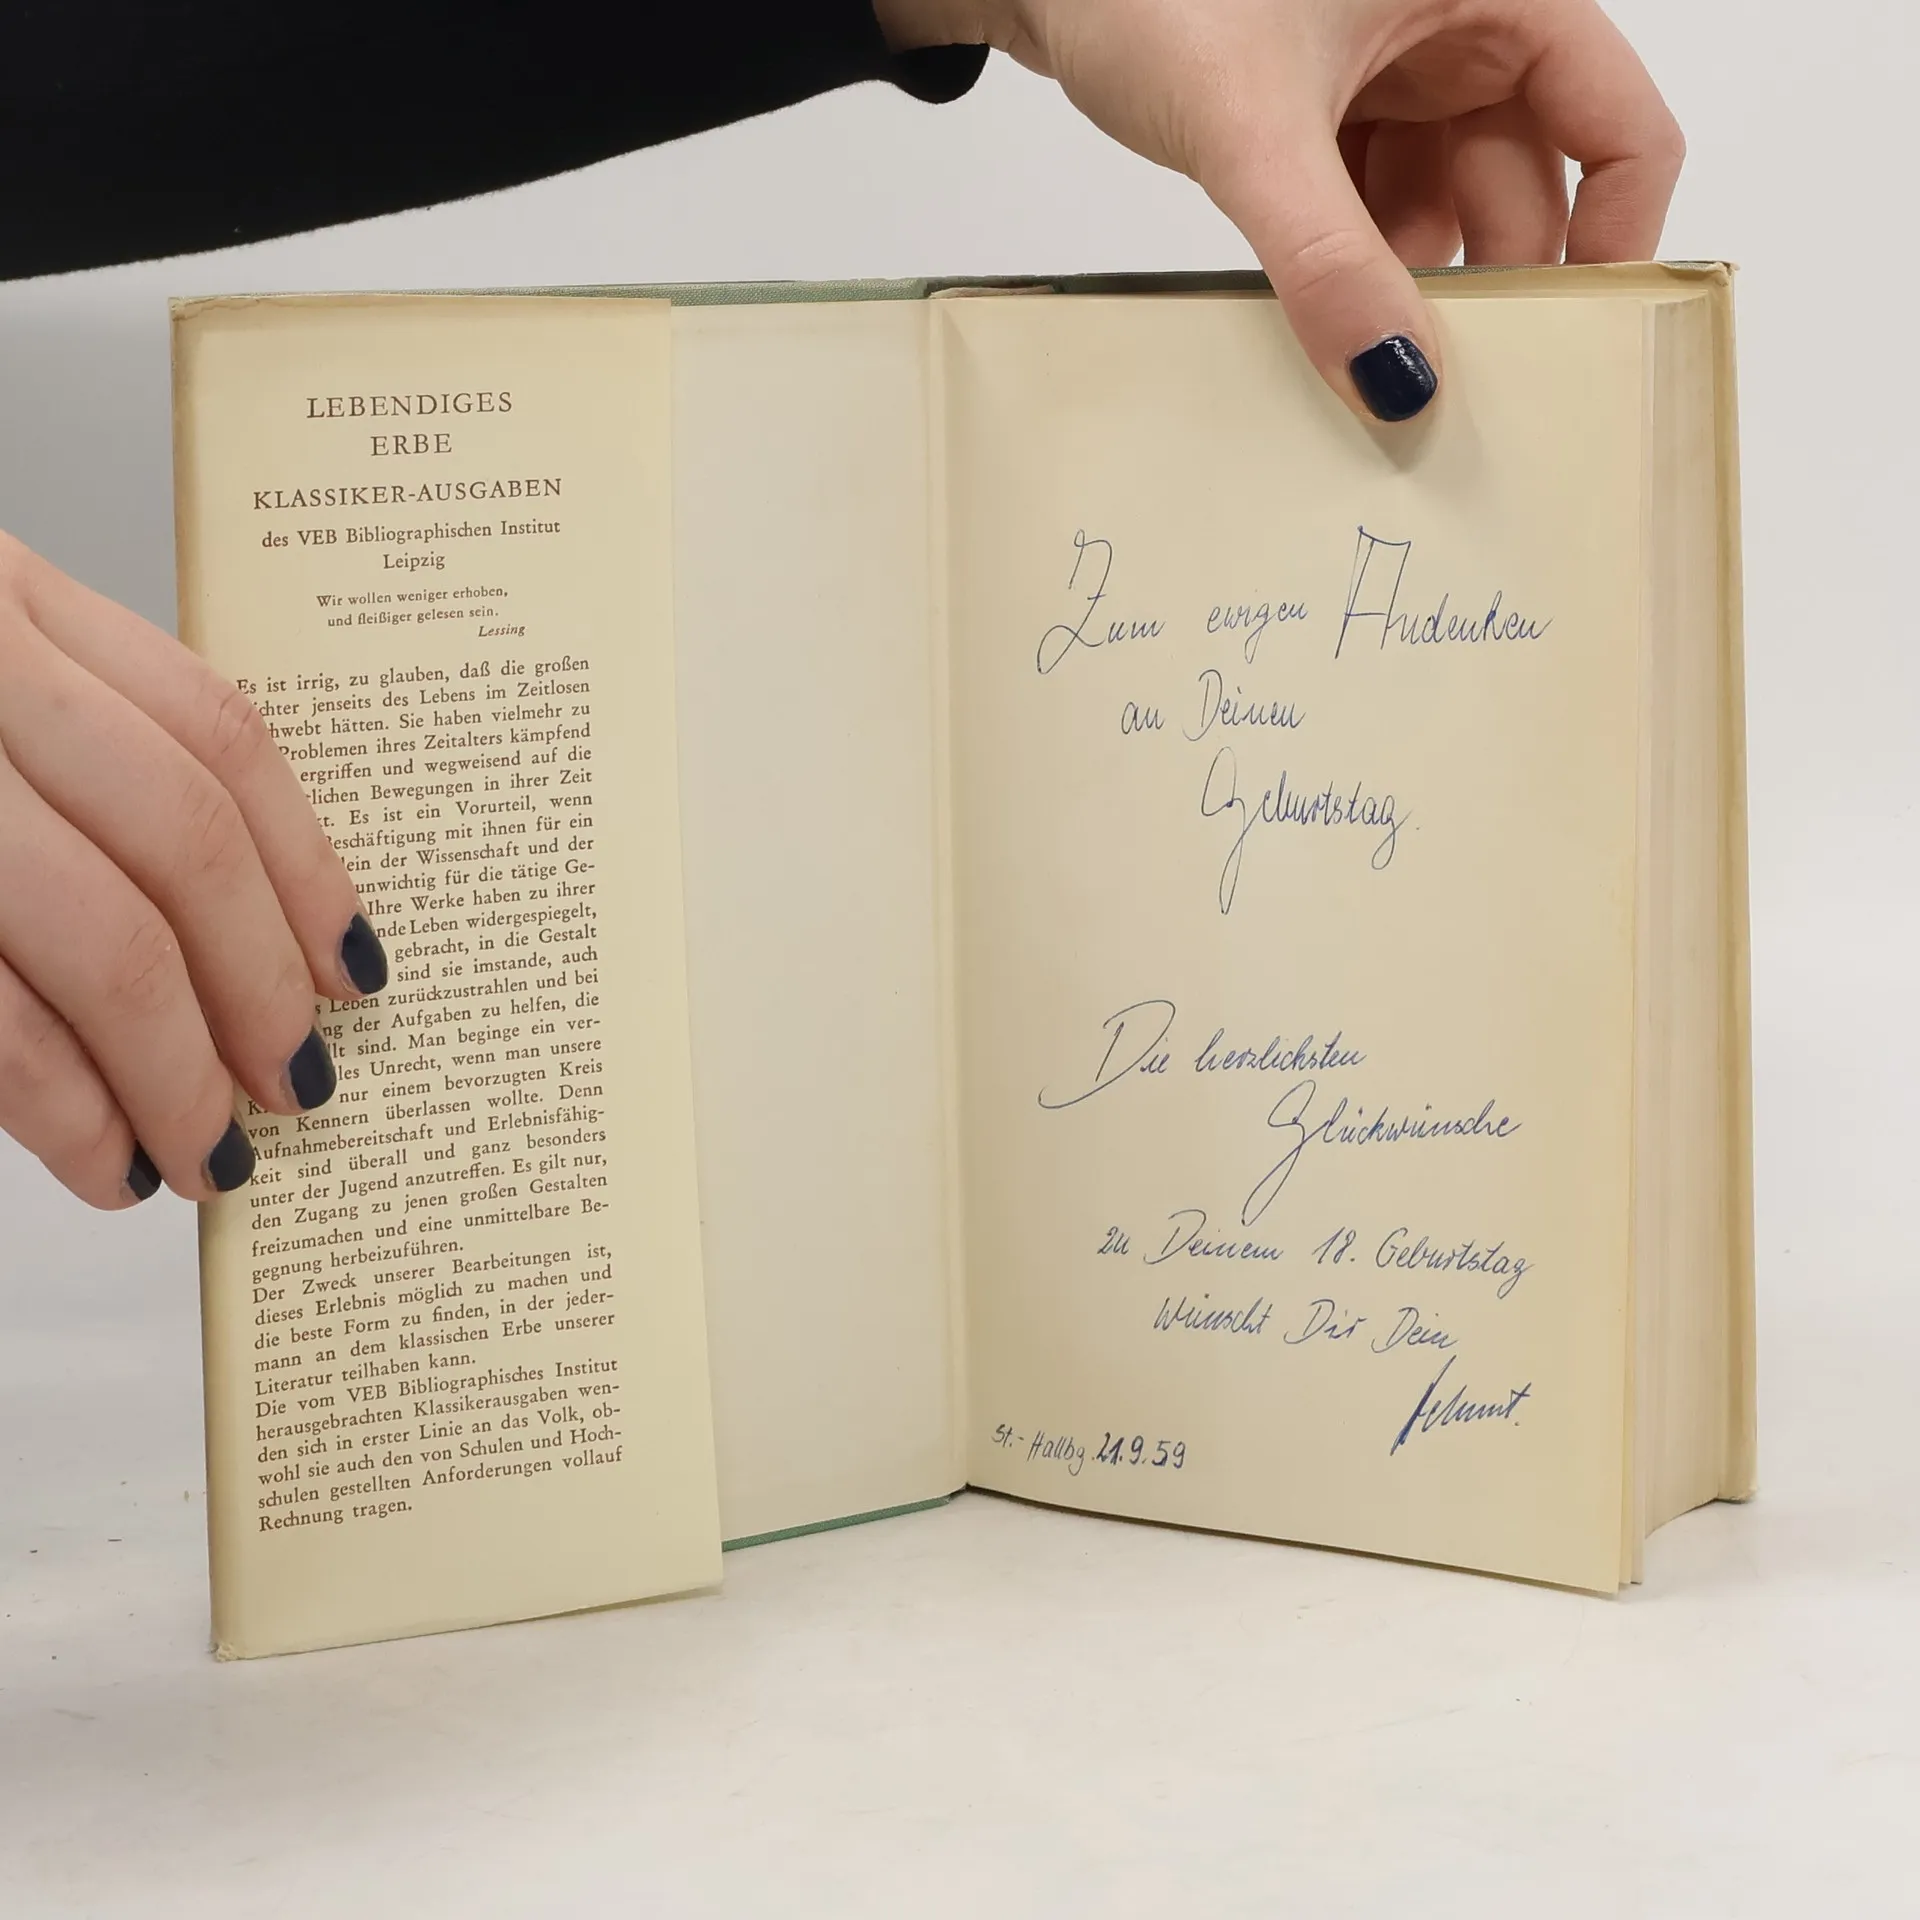 LEBENDIGES
ERBE
KLASSIKER-AUSGABEN
des VEB Bibliographischen Institut
Leipzig
Wir wollen weniger erhoben,
und fleißiger gelesen sein.
Lessing
Es ist irrig, zu glauben, daß die großen
ichter jenseits des Lebens im Zeitlosen
hwebt hätten. Sie haben vielmehr zu
Problemen ihres Zeitalters kämpfend
ergriffen und wegweisend auf die
tlichen Bewegungen in ihrer Zeit
kt. Es ist ein Vorurteil, wenn
Beschäftigung mit ihnen für ein
lein der Wissenschaft und der
unwichtig für die tätige Ge-
Ihre Werke haben zu ihrer
nde Leben widergespiegelt,
gebracht, in die Gestalt
sind sie imstande, auch
s Leben zurückzustrahlen und bei
ng der Aufgaben zu helfen, die
llt sind. Man beginge ein ver-
les Unrecht, wenn man unsere
K nur einem bevorzugten Kreis
von Kennern überlassen wollte. Denn
Aufnahmebereitschaft und Erlebnisfähig-
keit sind überall und ganz besonders
unter der Jugend anzutreffen. Es gilt nur,
den Zugang zu jenen großen Gestalten
freizumachen und eine unmittelbare Be-
gegnung herbeizuführen.
Der Zweck unserer Bearbeitungen ist,
dieses Erlebnis möglich zu machen und
die beste Form zu finden, in der jeder-
mann an dem klassischen Erbe unserer
Literatur teilhaben kann.
Die vom VEB Bibliographisches Institut
herausgebrachten Klassikerausgaben wen-
den sich in erster Linie an das Volk, ob-
wohl sie auch den von Schulen und Hoch-
schulen gestellten Anforderungen vollauf
Rechnung tragen.
Zum ewigen Andenken
an Deinen
Geburtstag.
Die herzlichsten
Glückwünsche
zu Deinem 18. Geburtstag
wünscht Dir Dein
Helmut.
St.-Hallbg. 21.9.59